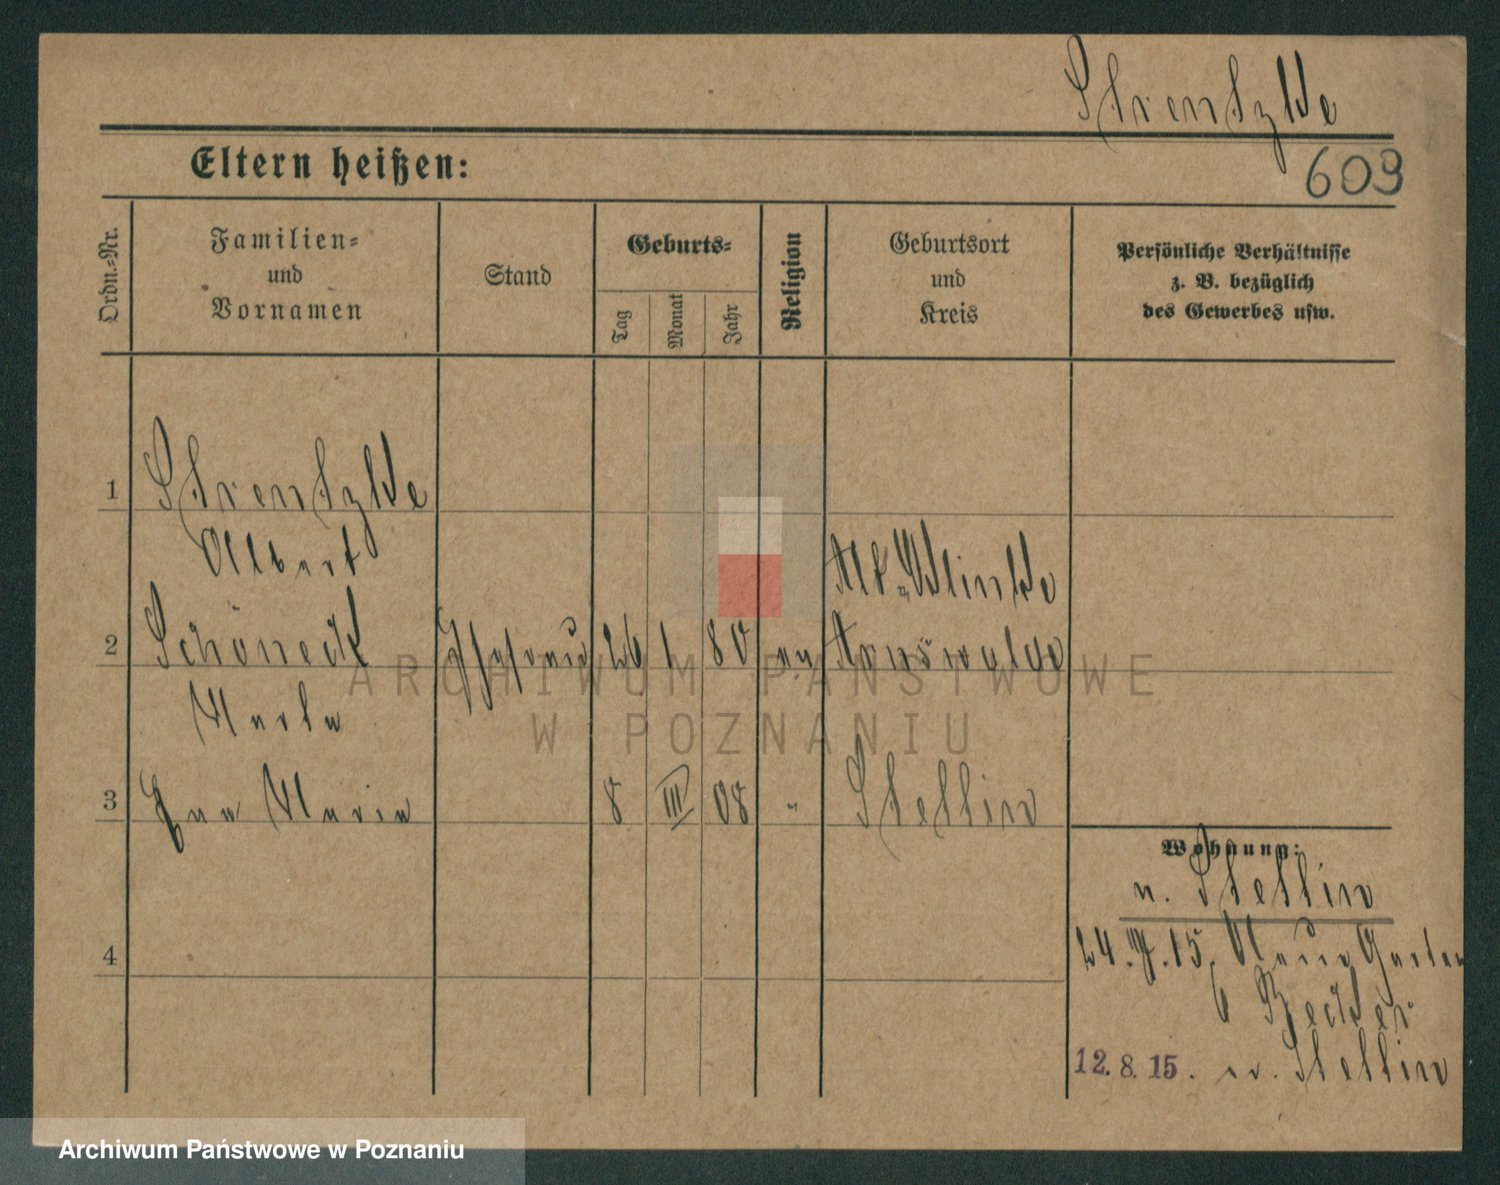 Strentzke
Eltern heißen:
609
Ordn.-Nr.
Familien-
und
Vornamen
Stand
Geburts-
Tag
Monat
Jahr
Religion
Geburtsort
und
Kreis
Persönliche Verhältnisse
z. B. bezüglich
des Gewerbes usw.
1
Strentzke
Albert
2
Schöneck
26 1 80 ev
Alt-Klinke
Arnswalde
3
Eva Maria
8 III 08 "
Stettin
4
Wohnung:
n. Stettin
24.7.15. Garten
6 Becker
12.8.15. n. Stettin
ARCHIWUM PAŃSTWOWE
W POZNANIU
Archiwum Państwowe w Poznaniu